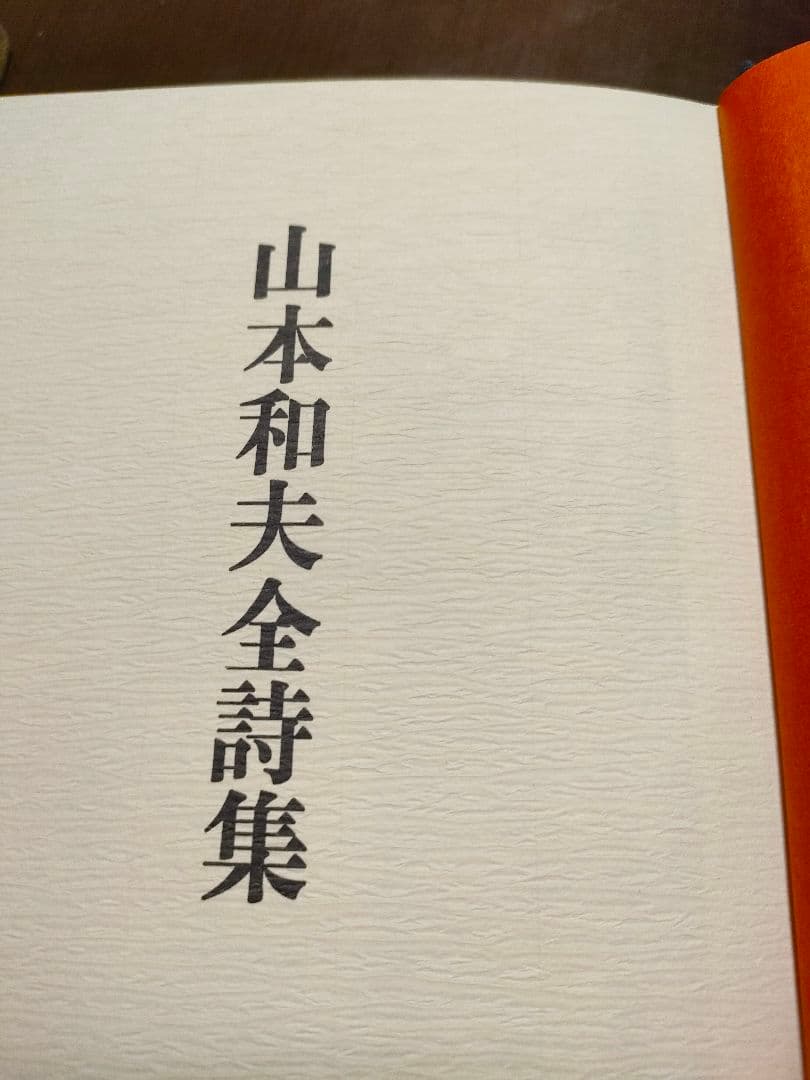 山本和夫全詩集